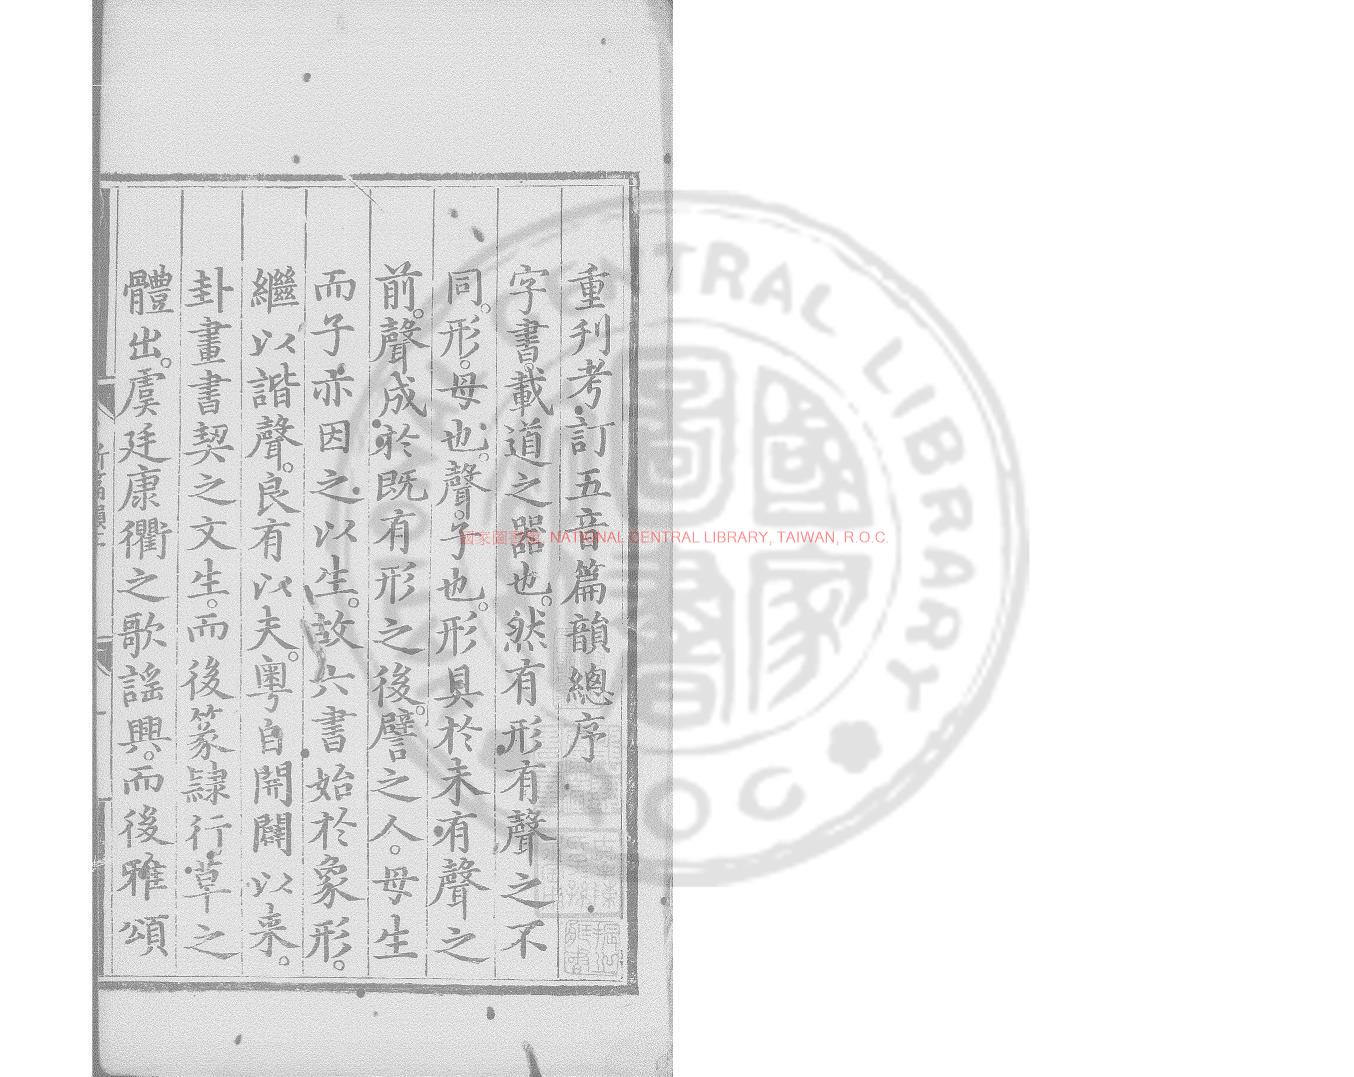 重刋考訂五音篇韻總序
字書載道之器也。然有形有聲之不
同。形。母也。聲。子也。形具於未有聲之
前。聲成於既有形之後。譬之人。母生
而子亦因之以生。故六書始於象形。
繼以諧聲。良有以夫。粵自開闢以来。
卦畫書契之文生。而後篆隷行草之
體出。虞廷康衢之歌謡興。而後雅頌
國家圖書館 NATIONAL CENTRAL LIBRARY, TAIWAN, R.O.C.